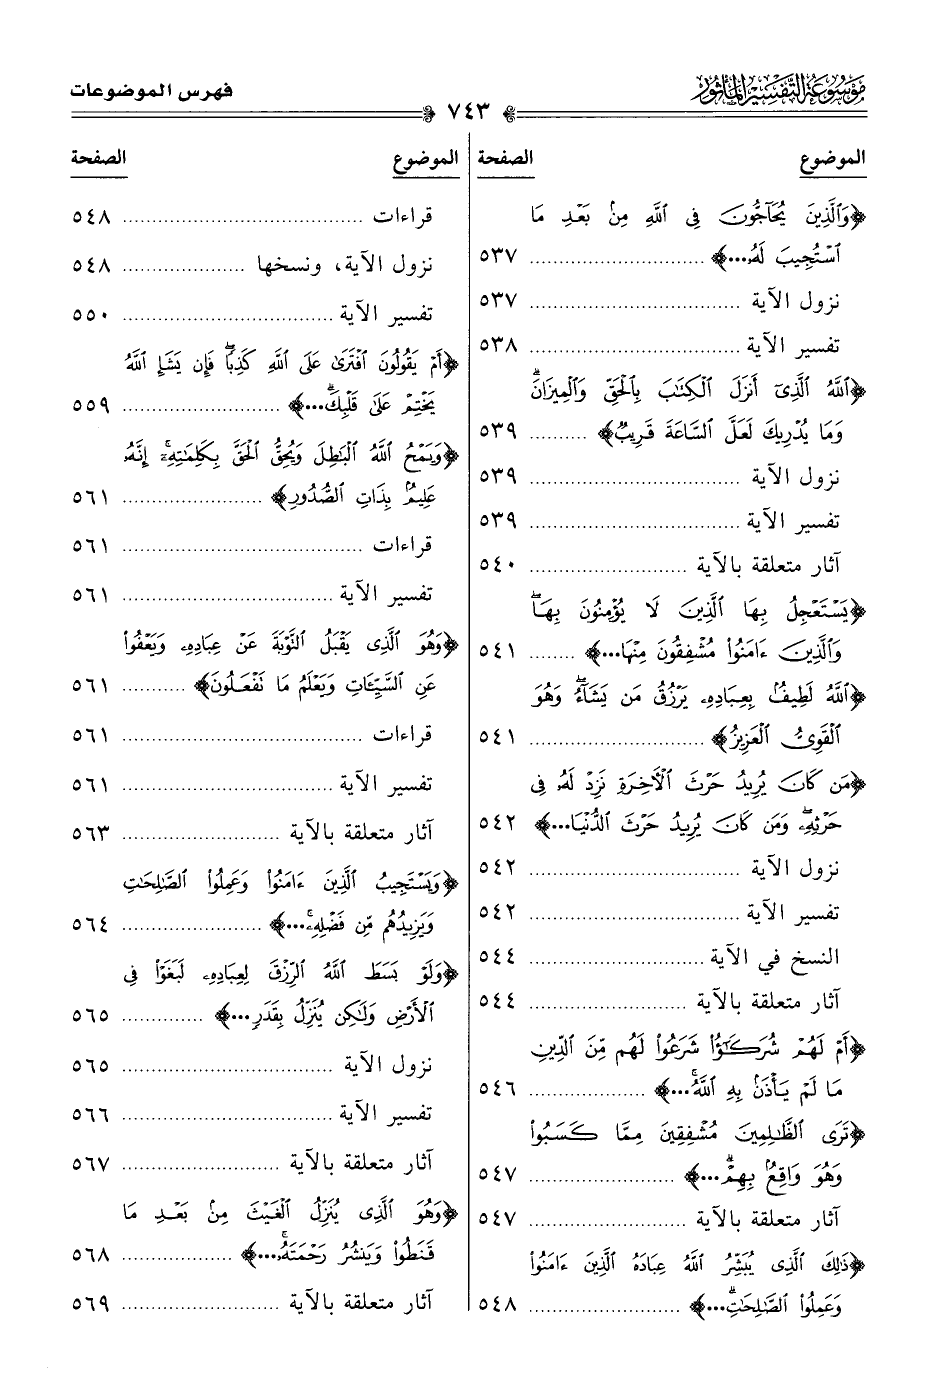 موسوعة التفسير المأثور
٧٤٣
فهرس الموضوعات
الموضوع الصفحة
﴿وَٱلَّذِينَ يُحَآجُّونَ فِى ٱللَّهِ مِنۢ بَعْدِ مَا
ٱسْتُجِيبَ لَهُۥ...﴾ ................ ٥٣٧
نزول الآية ................ ٥٣٧
تفسير الآية ................ ٥٣٨
﴿ٱللَّهُ ٱلَّذِىٓ أَنزَلَ ٱلْكِتَٰبَ بِٱلْحَقِّ وَٱلْمِيزَانَۗ
وَمَا يُدْرِيكَ لَعَلَّ ٱلسَّاعَةَ قَرِيبٌ﴾ .......... ٥٣٩
نزول الآية ................ ٥٣٩
تفسير الآية ................ ٥٣٩
آثار متعلقة بالآية ................ ٥٤٠
﴿يَسْتَعْجِلُ بِهَا ٱلَّذِينَ لَا يُؤْمِنُونَ بِهَاۖ
وَٱلَّذِينَ ءَامَنُوا۟ مُشْفِقُونَ مِنْهَا...﴾ ........ ٥٤١
﴿ٱللَّهُ لَطِيفٌۢ بِعِبَادِهِۦ يَرْزُقُ مَن يَشَآءُۖ وَهُوَ
ٱلْقَوِىُّ ٱلْعَزِيزُ﴾ ................ ٥٤١
﴿مَن كَانَ يُرِيدُ حَرْثَ ٱلْأَخِرَةِ نَزِدْ لَهُۥ فِى
حَرْثِهِۦۖ وَمَن كَانَ يُرِيدُ حَرْثَ ٱلدُّنْيَا...﴾ ٥٤٢
نزول الآية ................ ٥٤٢
تفسير الآية ................ ٥٤٢
النسخ في الآية ................ ٥٤٤
آثار متعلقة بالآية ................ ٥٤٤
﴿أَمْ لَهُمْ شُرَكَٰٓؤُا۟ شَرَعُوا۟ لَهُم مِّنَ ٱلدِّينِ
مَا لَمْ يَأْذَنۢ بِهِ ٱللَّهُۚ...﴾ ................ ٥٤٦
﴿تَرَى ٱلظَّٰلِمِينَ مُشْفِقِينَ مِمَّا كَسَبُوا۟
وَهُوَ وَاقِعٌۢ بِهِمْۗ...﴾ ................ ٥٤٧
آثار متعلقة بالآية ................ ٥٤٧
﴿ذَٰلِكَ ٱلَّذِى يُبَشِّرُ ٱللَّهُ عِبَادَهُ ٱلَّذِينَ ءَامَنُوا۟
وَعَمِلُوا۟ ٱلصَّٰلِحَٰتِۗ...﴾ ................ ٥٤٨
الموضوع الصفحة
قراءات ................ ٥٤٨
نزول الآية، ونسخها ................ ٥٤٨
تفسير الآية ................ ٥٥٠
﴿أَمْ يَقُولُونَ ٱفْتَرَىٰ عَلَى ٱللَّهِ كَذِبًاۖ فَإِن يَشَإِ ٱللَّهُ
يَخْتِمْ عَلَىٰ قَلْبِكَۗ...﴾ ................ ٥٥٩
﴿وَيَمْحُ ٱللَّهُ ٱلْبَٰطِلَ وَيُحِقُّ ٱلْحَقَّ بِكَلِمَٰتِهِۦٓۚ إِنَّهُۥ
عَلِيمٌۢ بِذَاتِ ٱلصُّدُورِ﴾ ................ ٥٦١
قراءات ................ ٥٦١
تفسير الآية ................ ٥٦١
﴿وَهُوَ ٱلَّذِى يَقْبَلُ ٱلتَّوْبَةَ عَنْ عِبَادِهِۦ وَيَعْفُوا۟
عَنِ ٱلسَّيِّـَٔاتِ وَيَعْلَمُ مَا تَفْعَلُونَ﴾ .......... ٥٦١
قراءات ................ ٥٦١
تفسير الآية ................ ٥٦١
آثار متعلقة بالآية ................ ٥٦٣
﴿وَيَسْتَجِيبُ ٱلَّذِينَ ءَامَنُوا۟ وَعَمِلُوا۟ ٱلصَّٰلِحَٰتِ
وَيَزِيدُهُم مِّن فَضْلِهِۦۚ...﴾ ................ ٥٦٤
﴿وَلَوْ بَسَطَ ٱللَّهُ ٱلرِّزْقَ لِعِبَادِهِۦ لَبَغَوْا۟ فِى
ٱلْأَرْضِ وَلَٰكِن يُنَزِّلُ بِقَدَرٍ...﴾ ............ ٥٦٥
نزول الآية ................ ٥٦٥
تفسير الآية ................ ٥٦٦
آثار متعلقة بالآية ................ ٥٦٧
﴿وَهُوَ ٱلَّذِى يُنَزِّلُ ٱلْغَيْثَ مِنۢ بَعْدِ مَا
قَنَطُوا۟ وَيَنشُرُ رَحْمَتَهُۥۚ...﴾ ................ ٥٦٨
آثار متعلقة بالآية ................ ٥٦٩